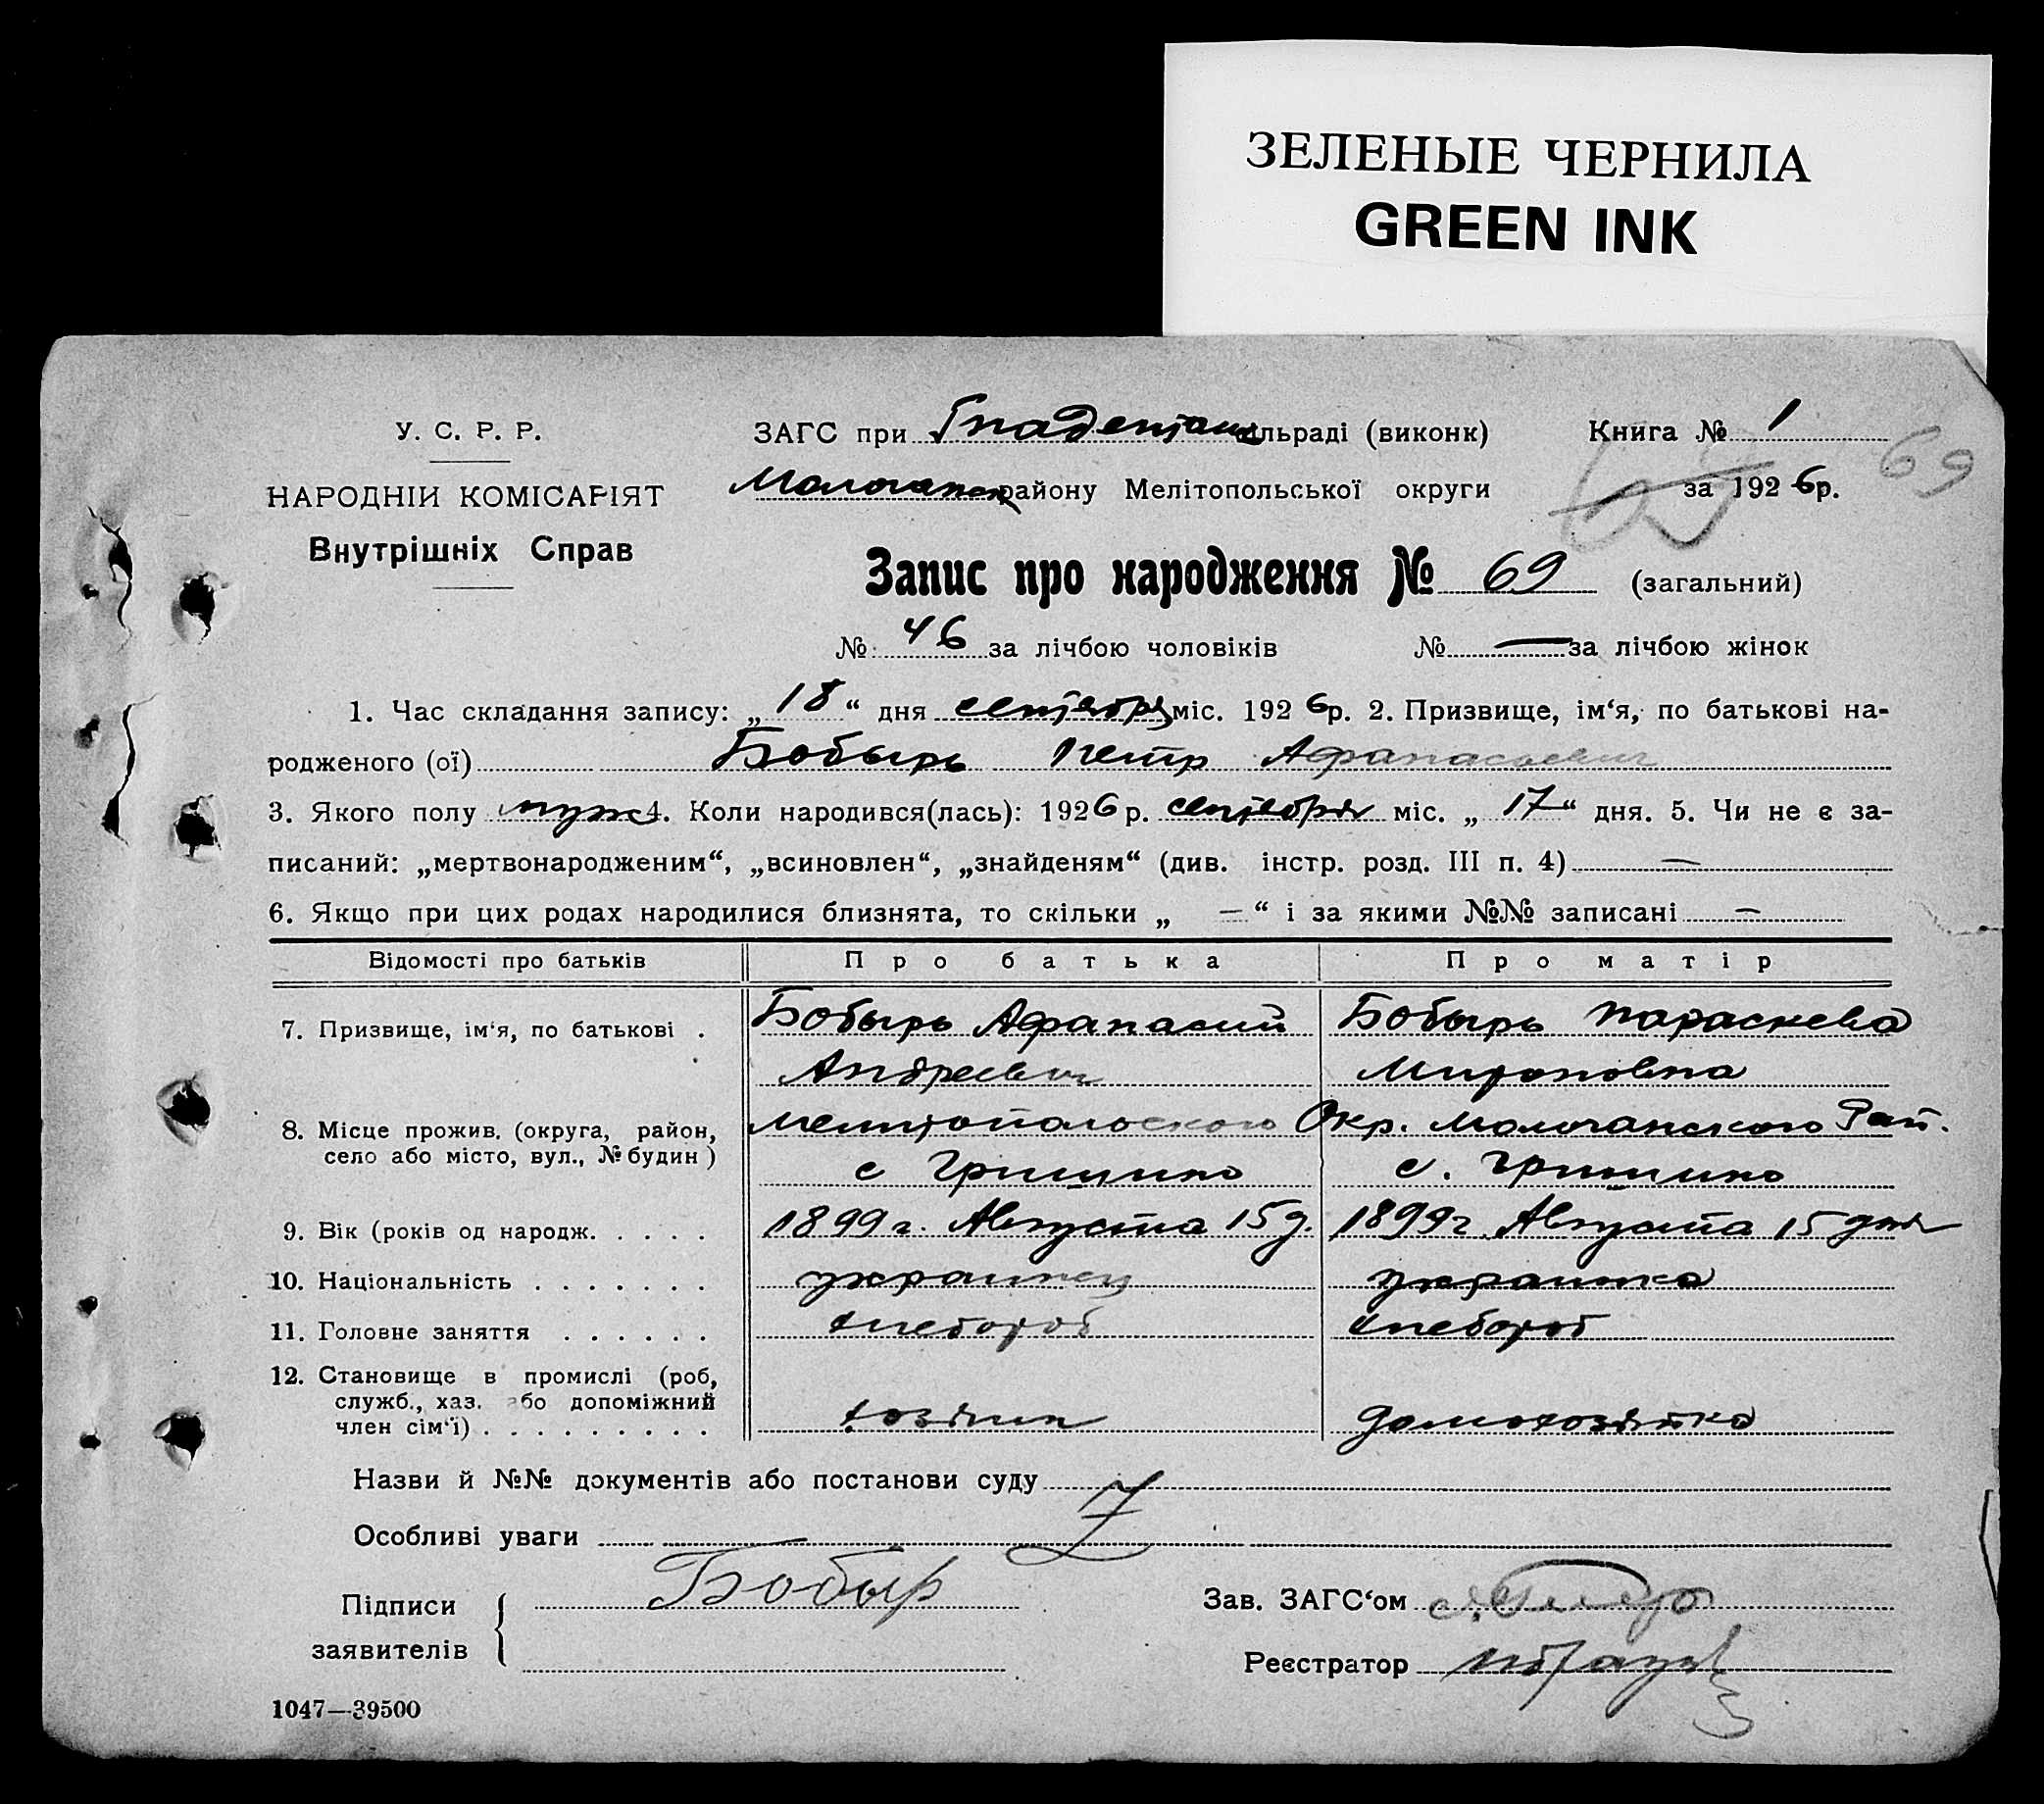 ЗЕЛЕНЫЕ ЧЕРНИЛА
GREEN INK
У. С. Р. Р.
НАРОДНІЙ КОМІСАРІЯТ
Внутрішніх Справ
ЗАГС при Гнаденталь сільраді (виконк) Книга № 1
Молочанск району Мелітопольської округи за 1926р. 69
Запис про народження № 69 (загальний)
№ 46 за лічбою чоловіків № — за лічбою жінок
1. Час складання запису: „18“ дня сентября міс. 1926р. 2. Призвище, ім‘я, по батькові на-
родженого (ої) Бобырь Петр Афанасьевич
3. Якого полу муж 4. Коли народився(лась): 1926р. сентября міс. „17“ дня. 5. Чи не є за-
писаний: „мертвонародженим“, „всиновлен“, „знайденям“ (див. інстр. розд. III п. 4) —
6. Якщо при цих родах народилися близнята, то скільки „ — “ і за якими №№ записані —
Відомості про батьків Про батька Про матір
7. Призвище, ім‘я, по батькові . Бобырь Афанасий Бобырь Параскева
Андреевич Мироновна
8. Місце прожив. (округа, район, село або місто, вул., № будин) Мелитопольского Окр. Молочанского Рай.
с Гришино с. Гришино
9. Вік (років од народж. . . . . 1899 г. Августа 15 д. 1899 г. Августа 15 дня
10. Національність . . . . . . . украинец украинка
11. Головне заняття . . . . . . хлебороб хлебороб
12. Становище в промислі (роб, служб., хаз. або допоміжний член сім‘ї) . . . . . . . . . хозяин домохозяйка
Назви й №№ документів або постанови суду
Особливі уваги
Підписи заявителів { Бобыр
Зав. ЗАГС‘ом
Реєстратор
1047—39500